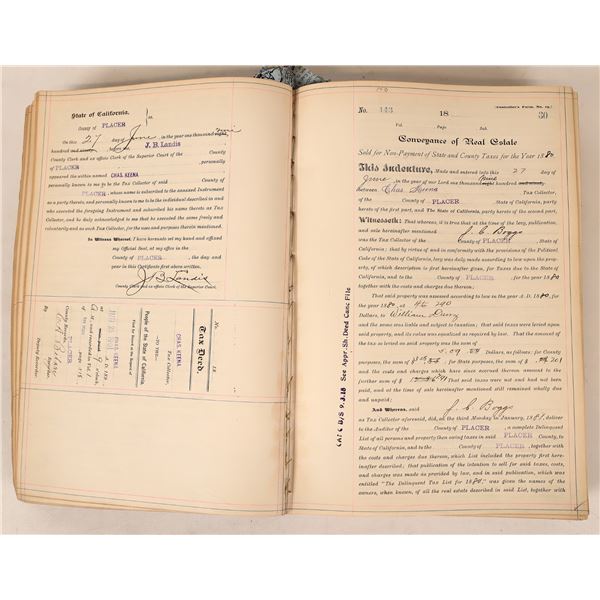 State of California, } ss.
County of PLACER
On this 27 day of June, in the year one thousand nine
hundred J. B. Landis
County Clerk and ex officio Clerk of the Superior Court of the County
of PLACER, personally
appeared the within named CHAS. KEENA
personally known to me to be the Tax Collector of said County
of PLACER, whose name is subscribed to the annexed Instrument
as a party thereto, and personally known to me to be the individual described in and
who executed the foregoing Instrument and subscribed his name thereto as Tax
Collector, and he duly acknowledged to me that he executed the same freely and
voluntarily and as such Tax Collector, for the uses and purposes therein mentioned.
In Witness Whereof, I have hereunto set my hand and affixed
my Official Seal, at my office in the County
of PLACER, the day and
year in this Certificate first above written.
J. B. Landis
County Clerk and ex officio Clerk of the Superior Court.
No.
Tax Deed.
CHAS. KEENA
Tax Collector,
—TO THE—
People of the State of California.
Filed for Record at the Request of
CHAS. KEENA
PLACER
County Recorder.
By
Deputy Recorder.
CAT 6 B/S 9.3.18 See Appr. Sh. Deed Canc File
146
No. 143 18 (Controller's Form, No. 19.) 30
Vol. Page Sub.
Conveyance of Real Estate
Sold for Non-Payment of State and County Taxes for the Year 1880
This Indenture, Made and entered into this 27 day of
June, in the year of our Lord one thousand nine hundred
between Chas. Keena Tax Collector,
of the County of PLACER, State of California, party
hereto of the first part, and The State of California, party hereto of the second part,
Witnesseth: That whereas, it is true that at the time of the levy, publication,
and sale hereinafter mentioned J. C. Boggs
was the Tax Collector of the County of PLACER, State of
California; that by virtue of and in conformity with the provisions of the Political
Code of the State of California, levy was duly made according to law upon the property,
of which description is first hereinafter given, for Taxes due to the State of
California, and to the County of PLACER, for the year 1880
together with the costs and charges due thereon;
That said property was assessed according to law in the year A. D. 1880, for
the year 1880, at $ 290
Dollars, to William Dury
and the same was liable and subject to taxation; that said taxes were levied upon
said property, and its value was equalized as required by law. That the amount of
taxes levied upon said property were as follows: for State purposes, the sum of
Dollars, as follows: for County
purposes, the sum of $ the sum of $
and the costs and charges which have since accrued thereon amount to the
further sum of $ That said taxes were not and had not been
paid, and at the time of sale hereinafter mentioned still remained wholly due and
unpaid; and
And Whereas, said J. C. Boggs
as Tax Collector aforesaid, did, on the third Monday in January, 1881, deliver
to the Auditor of the County of PLACER, a complete Delinquent
List of all persons and property then owing taxes in said PLACER County,
to State of California, and to the County of PLACER, together with
the costs and charges due thereon, which List included the property first here-
inafter described; that publication of the intention to sell for said taxes, costs,
and charges was made as provided by law, and in said publication, which was
entitled "The Delinquent Tax List for 1880," was given the names of the
owners, when known, of all the real estate described in said list, together with